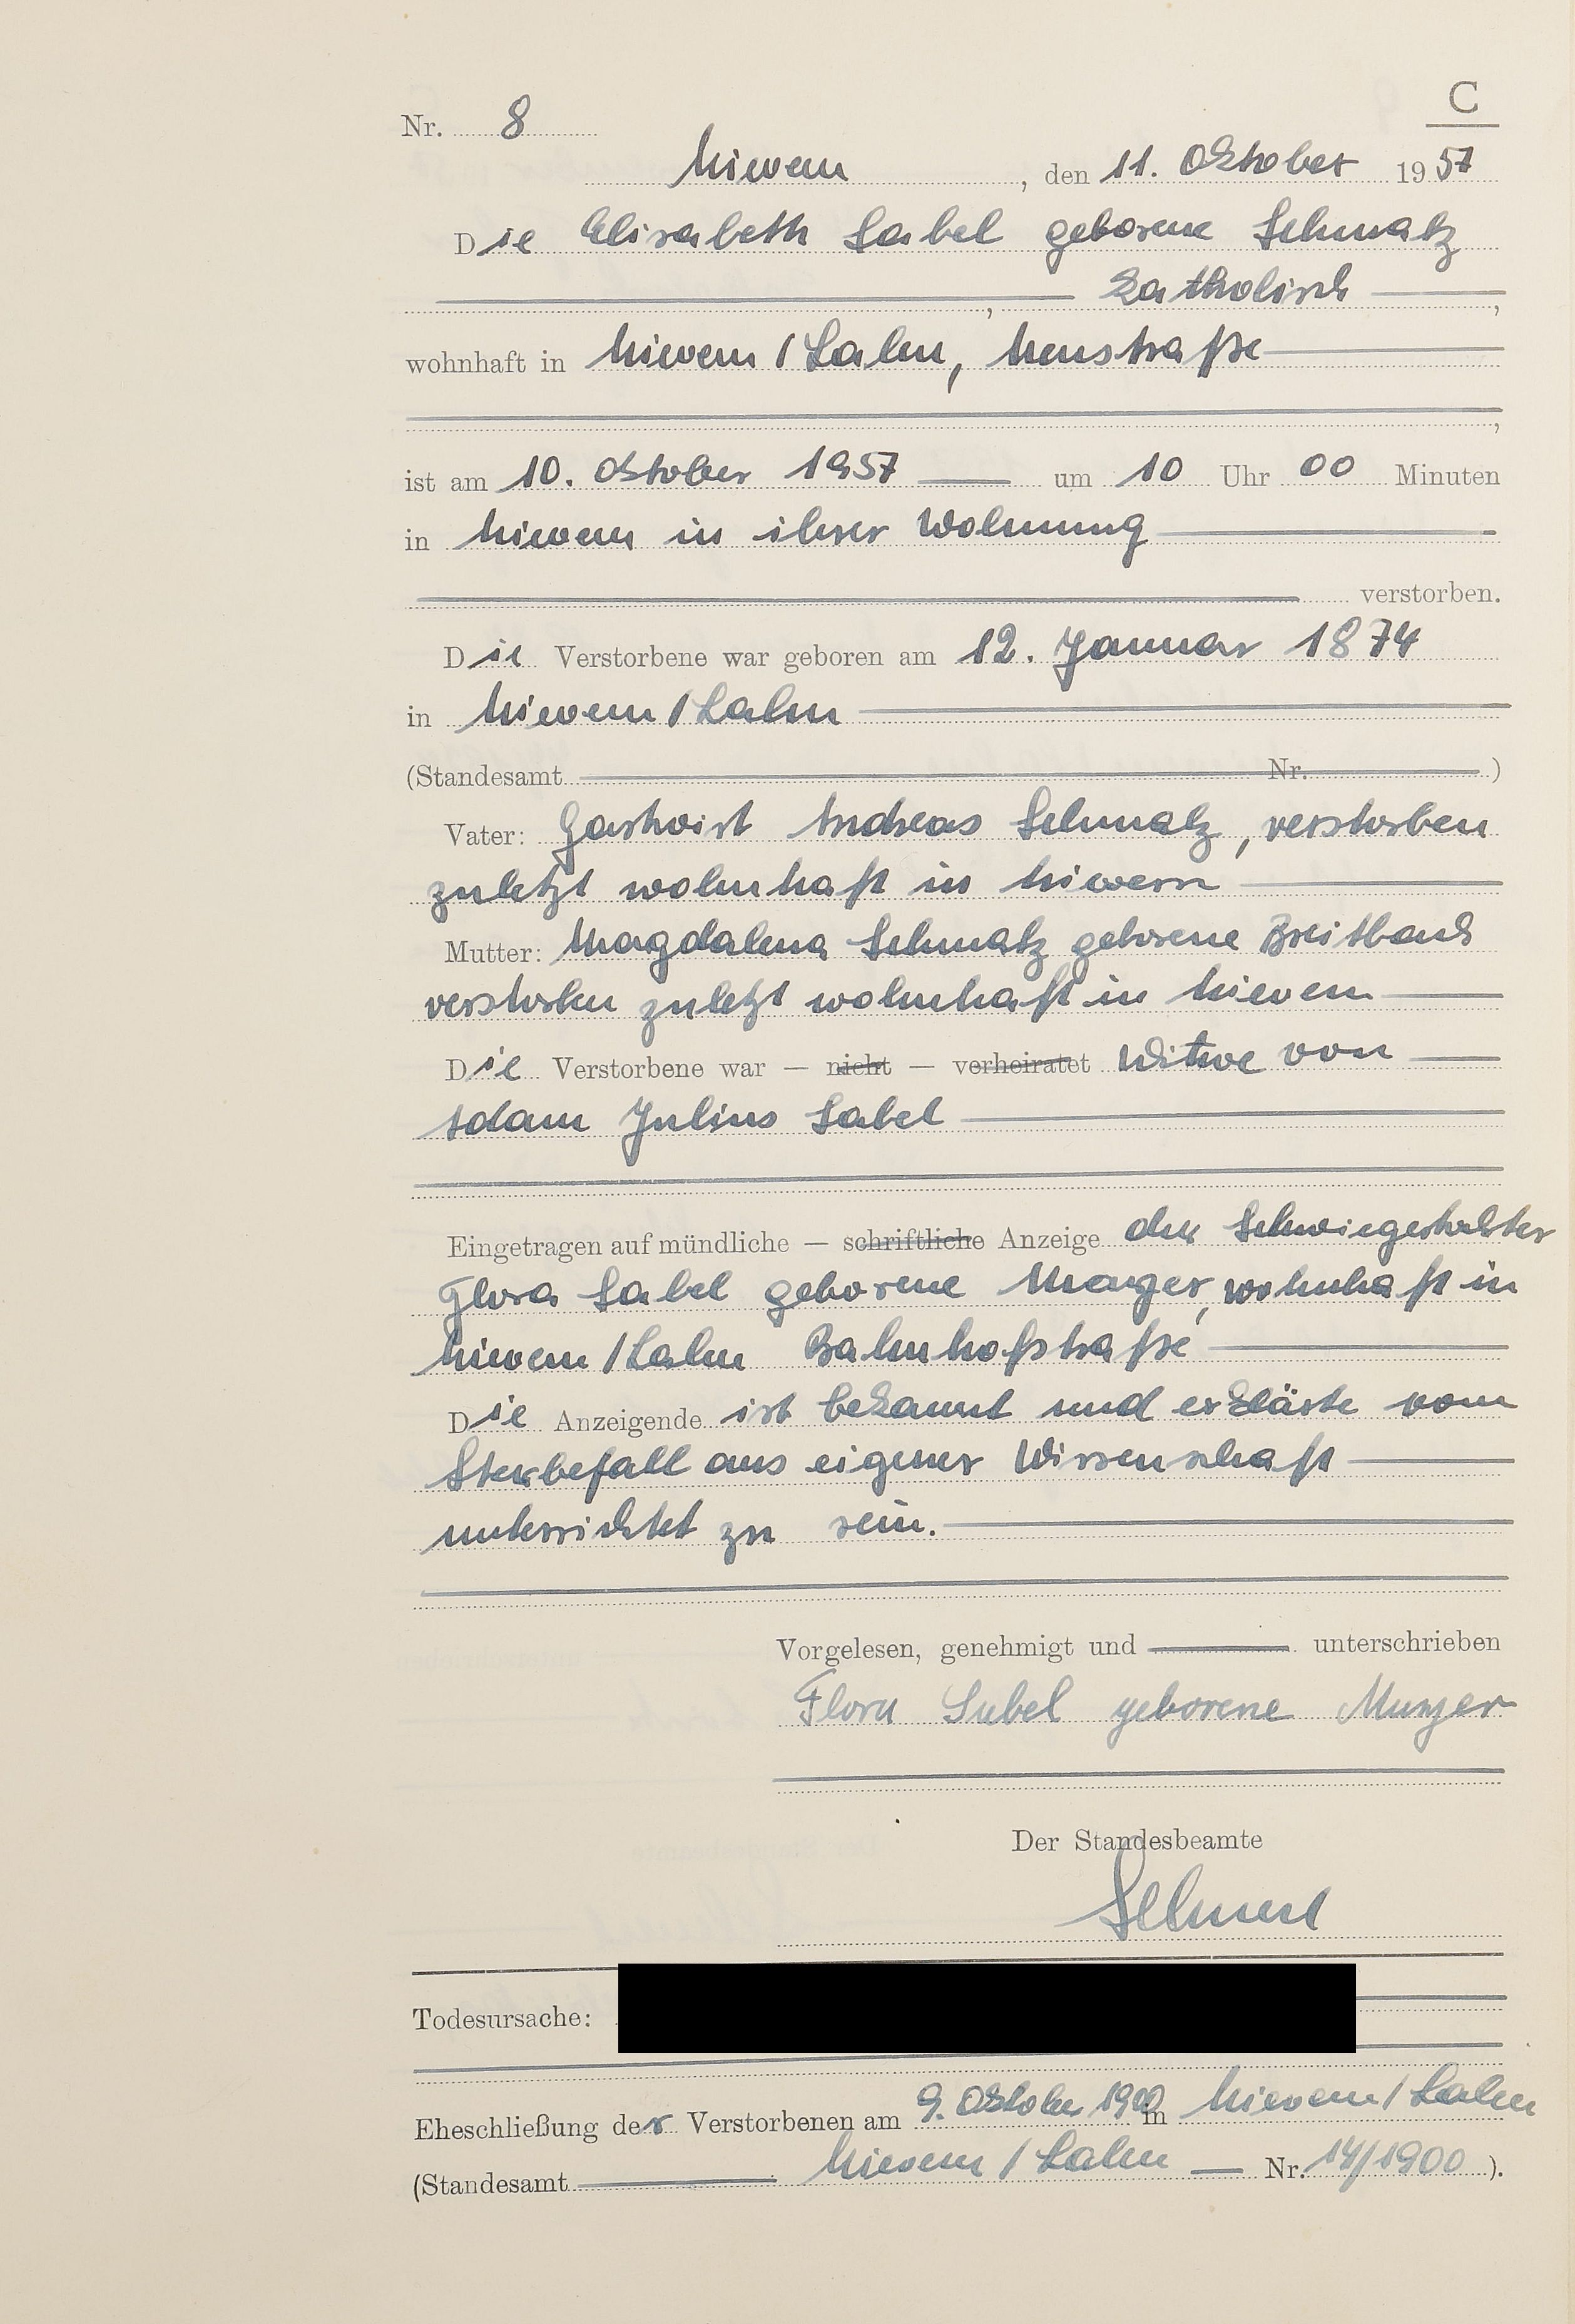 C
Nr. 8
Nievern, den 11. Oktober 1957
Die Elisabeth Sabel geborene Schmatz
, katholisch,
wohnhaft in Nievern / Lahn, Neustraße
,
ist am 10. Oktober 1957 um 10 Uhr 00 Minuten
in Nievern in ihrer Wohnung
verstorben.
Die Verstorbene war geboren am 12. Januar 1874
in Nievern / Lahn
(Standesamt Nr. )
Vater: Gastwirt Andreas Schmatz, verstorben
zuletzt wohnhaft in Nievern
Mutter: Magdalena Schmatz geborene Breitbach
verstorben zuletzt wohnhaft in Nievern
Die Verstorbene war — nicht — verheiratet Witwe von
Adam Julius Sabel
Eingetragen auf mündliche — schriftliche Anzeige der Schwiegertochter
Flora Sabel geborene Manger, wohnhaft in
Nievern / Lahn Bahnhofstraße
Die Anzeigende ist bekannt und erklärte vom
Sterbefall aus eigener Wissenschaft
unterrichtet zu sein.
Vorgelesen, genehmigt und unterschrieben
Flora Sabel geborene Manger
Der Standesbeamte
Todesursache:
Eheschließung der Verstorbenen am 9. Oktober 1900 in Nievern / Lahn
(Standesamt Nievern / Lahn — Nr. 14/1900 ).